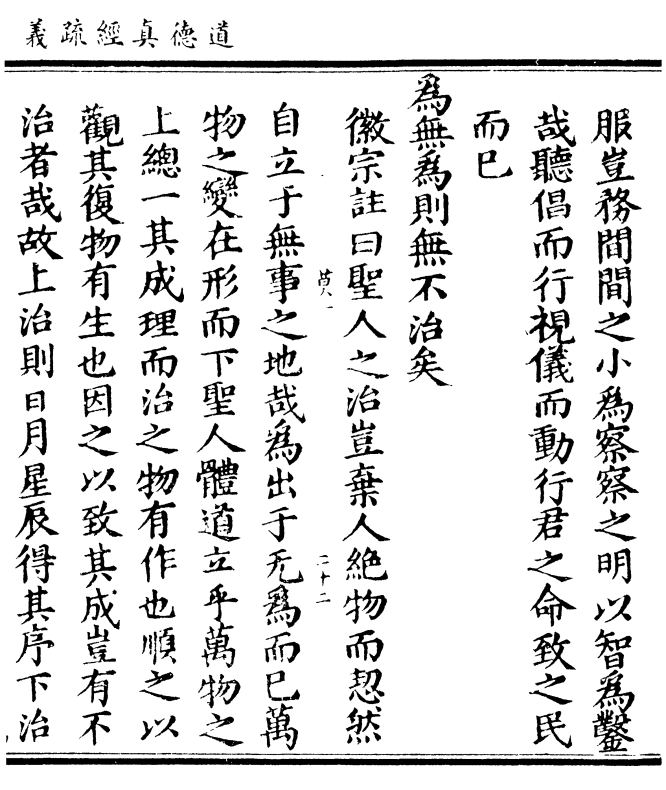 道德真經疏義
服豈務閒閒之小爲察察之明以智爲鑿
哉聽倡而行視儀而動行君之命致之民
而已
爲無爲則無不治矣
徽宗註曰聖人之治豈棄人絶物而恝然
莫八一
二十二
自立于無事之地哉爲出于无爲而已萬
物之變在形而下聖人體道立乎萬物之
上總一其成理而治之物有作也順之以
觀其復物有生也因之以致其成豈有不
治者哉故上治則日月星辰得其序下治